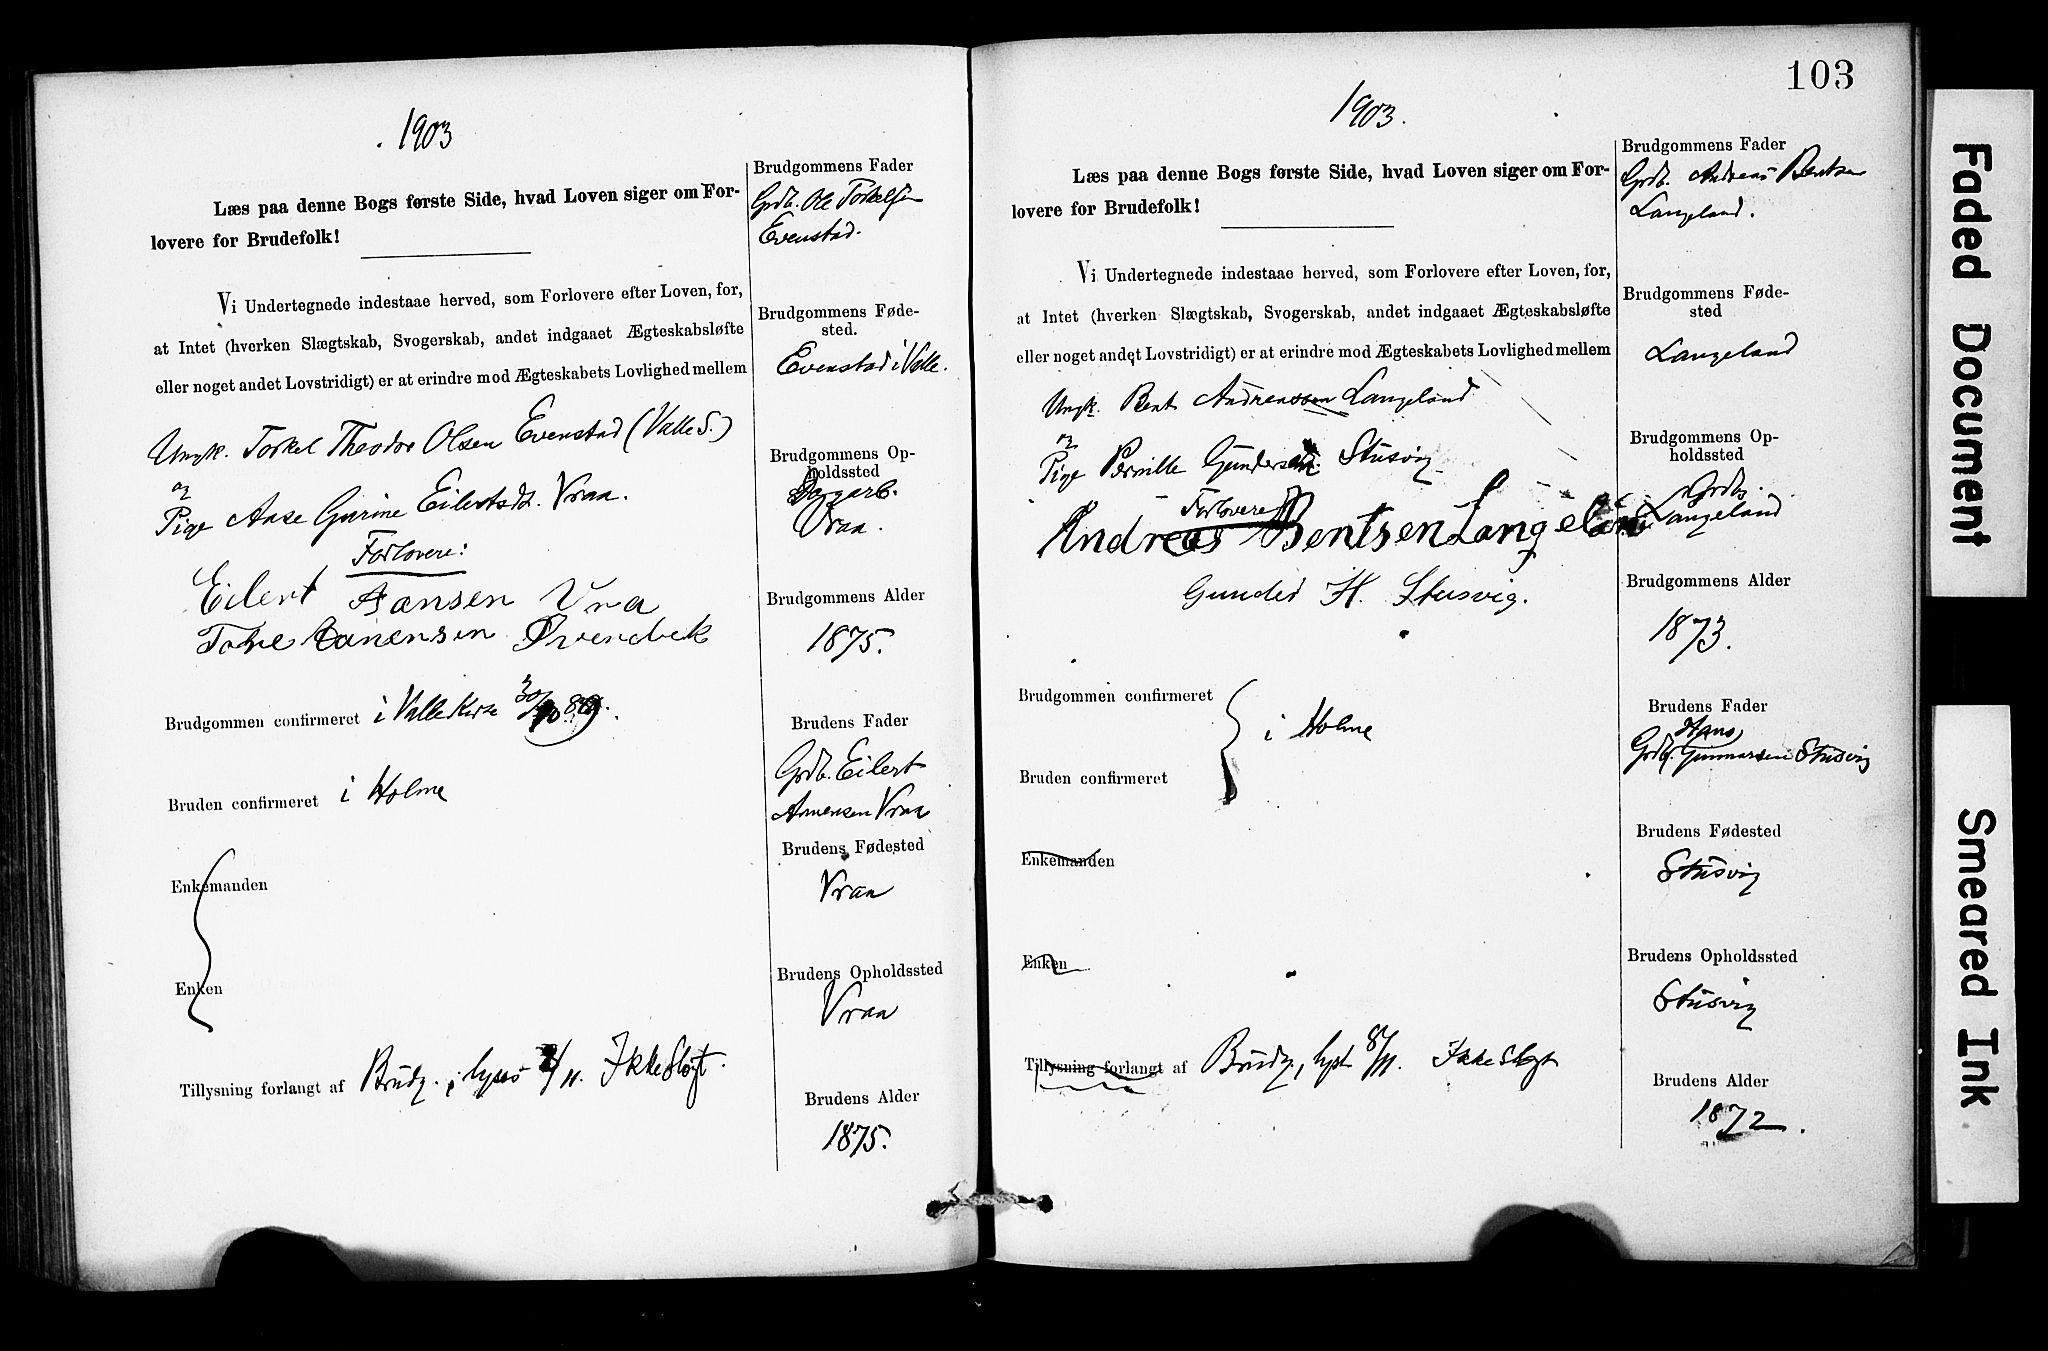 1903
Læs paa denne Bogs første Side, hvad Loven siger om For-
lovere for Brudefolk!
Vi Undertegnede indestaae herved, som Forlovere efter Loven, for,
at Intet (hverken Slægtskab, Svogerskab, andet indgaaet Ægteskabsløfte
eller noget andet Lovstridigt) er at erindre mod Ægteskabets Lovlighed mellem
Ungk. Torkel Theodor Olsen Evenstad (Valle S.)
og
Pige Aase Gurine Eilertsdt. Vraa.
Forlovere:
Eilert Aansen Vra
Tore
Brudgommen confirmeret i Valle Kirke
Bruden confirmeret i Holme
Enkemanden
Enken
Tillysning forlangt af Brudg. Ikke Slægt.
Brudgommens Fader
Grdb. Ole Torkelsen
Evenstad.
Brudgommens Føde-
sted.
Evenstad i Valle.
Brudgommens Op-
holdssted
Vraa.
Brudgommens Alder
1875.
Brudens Fader
Grdb. Eilert
Vraa
Brudens Fødested
Vraa
Brudens Opholdssted
Vraa
Brudens Alder
1875.
103
1903.
Læs paa denne Bogs første Side, hvad Loven siger om For-
lovere for Brudefolk!
Vi Undertegnede indestaae herved, som Forlovere efter Loven, for,
at Intet (hverken Slægtskab, Svogerskab, andet indgaaet Ægteskabsløfte
eller noget andet Lovstridigt) er at erindre mod Ægteskabets Lovlighed mellem
Ungk. Bent Andreassen Langeland
og
Pige Pernille Stusvig
Forlovere
Andreas Bentsen Langeland
Gunder H. Stusvig.
Brudgommen confirmeret
i Holme
Bruden confirmeret
Enkemanden
Enken
Tillysning forlangt af Brudg., lyst 8/11. Ikke Slægt
Brudgommens Fader
Grdb. Andreas Bentsen
Langeland.
Brudgommens Føde-
sted
Langeland
Brudgommens Op-
holdssted
Langeland
Brudgommens Alder
1873.
Brudens Fader
Hans
Grdb. Gunnarsen Stusvig
Brudens Fødested
Stusvig
Brudens Opholdssted
Stusvig
Brudens Alder
1872.
Faded Document
Smeared Ink